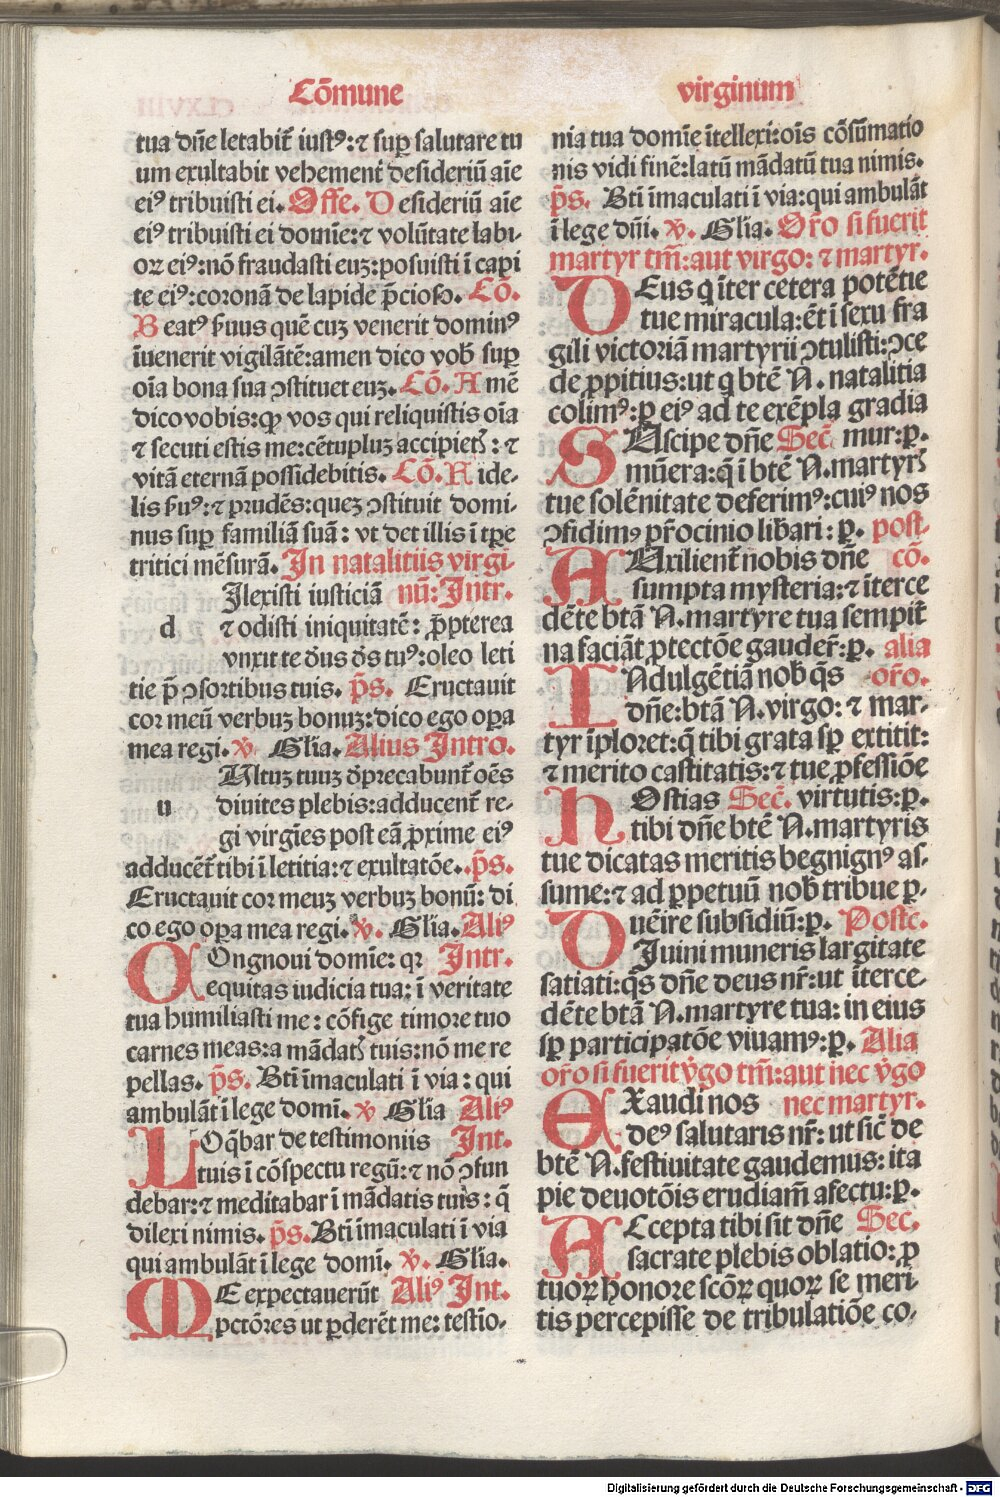 Cōmune
virginum
tua dn̄e letabit̄ iustꝰ: ⁊ suꝑ salutare tu
um exultabit vehement̄ desideriū aīe
eiꝰ tribuisti ei. Offe. Desideriū aīe
eiꝰ tribuisti ei domīe: ⁊ volūtate labi-
orz eiꝰ: nō fraudasti euꝫ: posuisti ī capi
te eiꝰ: coronā de lapide p̄cioso. Cō.
Beatꝰ ẜuus quē cuꝫ venerit dominꝰ
īuenerit vigilātē: amen dico vob̄ suꝑ
oīa bona sua ↄstituet euꝫ. Cō. Amē
dico vobis: qꝙ vos qui reliquistis oīa
⁊ secuti estis me: cētupluꝫ accipiet̄: ⁊
vitā eternā possidebitis. Cō. Fide-
lis ẜuꝰ: ⁊ prudēs: queꝫ ↄstituit domi-
nus suꝑ familiā suā: vt det illis ī tp̄e
tritici mēsurā. In natalitiis virgi
d
Ilexisti iusticiā nū: Intr.
⁊ odisti iniquitatē: ꝓpterea
vnxit te d̄us d̄s tuꝰ: oleo leti
tie p̄ ↄsortibus tuis. p̄s. Eructauit
cor meū verbuꝫ bonuꝫ: dico ego oꝑa
mea regi. v̄. Gl̄ia. Alius Intro.
u
Ultuꝫ tuuꝫ d̄precabunt̄ oēs
diuites plebis: adducent̄ re-
gi virgīes post eā ꝓxime eiꝰ
adducēt̄ tibi ī letitia: ⁊ exultatōe. p̄s.
Eructauit cor meuꝫ verbuꝫ bonū: di
co ego oꝑa mea regi. v̄. Gl̄ia. Aliꝰ
COngnoui domīe: qꝛ Intr.
equitas iudicia tua: ī veritate
tua humiliasti me: cōfige timore tuo
carnes meas: a mādat̄ tuis: nō me re
pellas. p̄s. Bt̄i īmaculati ī via: qui
ambulāt ī lege domī. v̄ Gl̄ia Aliꝰ
LOq̄bar de testimoniis Int.
tuis ī cōspectu regū: ⁊ nō ↄfun
debar: ⁊ meditabar ī mādatis tuis: q̄
dilexi nimis. p̄s. Bt̄i īmaculati ī via
qui ambulāt ī lege domī. v̄. Gl̄ia.
ME expectauerūt Aliꝰ Int.
pctōres ut ꝑderēt me: testīo-
nia tua domīe ītellexi: oīs cōsūmatio
nis vidi finē: latū mādatū tua nimis.
p̄s. Bt̄i īmaculati ī via: qui ambulāt
ī lege dn̄i. v̄. Gl̄ia. Or̄o si fuerit
martyr tm̄: aut virgo: ⁊ martyr.
DEus q īter cetera potētie
tue miracula: ēt ī sexu fra
gili victoriā martyrii ↄtulisti: ↄce
de ꝓpitius: ut q btē N. natalitia
colimꝰ: ꝑ eiꝰ ad te exēpla gradia
SUscipe dn̄e Sec̄. mur: ꝑ.
mūera: q̄ ī btē N. martyr̄
tue solēnitate deferimꝰ: cuiꝰ nos
ↄfidimꝰ pr̄ocinio lib̄ari: ꝑ. post
AUxilient̄ nobis dn̄e cō.
sumpta mysteria: ⁊ īterce
dēte btā N. martyre tua sempit̄
na faciāt ꝓtectōe gauder̄: ꝑ. alia
INdulgētiā nob̄ q̄s or̄o.
dn̄e: btā N. virgo: ⁊ mar-
tyr īploret: q̄ tibi grata sꝑ extitit:
⁊ merito castitatis: ⁊ tue ꝓfessiōe
HOstias Sec̄. virtutis: ꝑ.
tibi dn̄e btē N. martyris
tue dicatas meritis begnignꝰ as-
sume: ⁊ ad ꝑpetuū nob̄ tribue ꝑ-
uēire subsidiū: ꝑ. Postc.
DIuini muneris largitate
satiati: q̄s dn̄e deus nr̄: ut īterce-
dēte btā N. martyre tua: in eius
sꝑ participatōe viuamꝰ: ꝑ. Alia
or̄o si fuerit v̄go tm̄: aut nec v̄go
EXaudi nos nec martyr.
deꝰ salutaris nr̄: ut sic̄ de
btē N. festiuitate gaudemus: ita
pie deuotōis erudiam̄ afectu: ꝑ.
ACcepta tibi sit dn̄e Sec.
sacrate plebis oblatio: ꝓ
tuoꝝ honore scōꝝ quoꝝ se meri-
tis percepisse de tribulatiōe co-
Digitalisierung gefördert durch die Deutsche Forschungsgemeinschaft - DFG